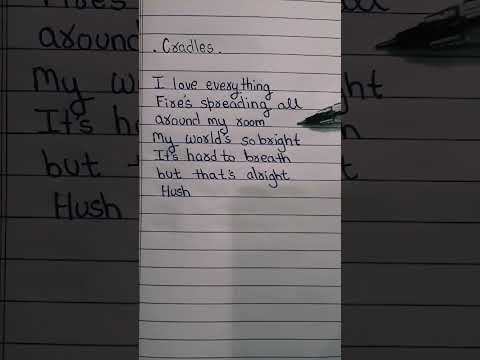 . Cradles .
I love everything
Fire's spreading all
around my room
My world's so bright
It's hard to breath
but that's alright
Hush